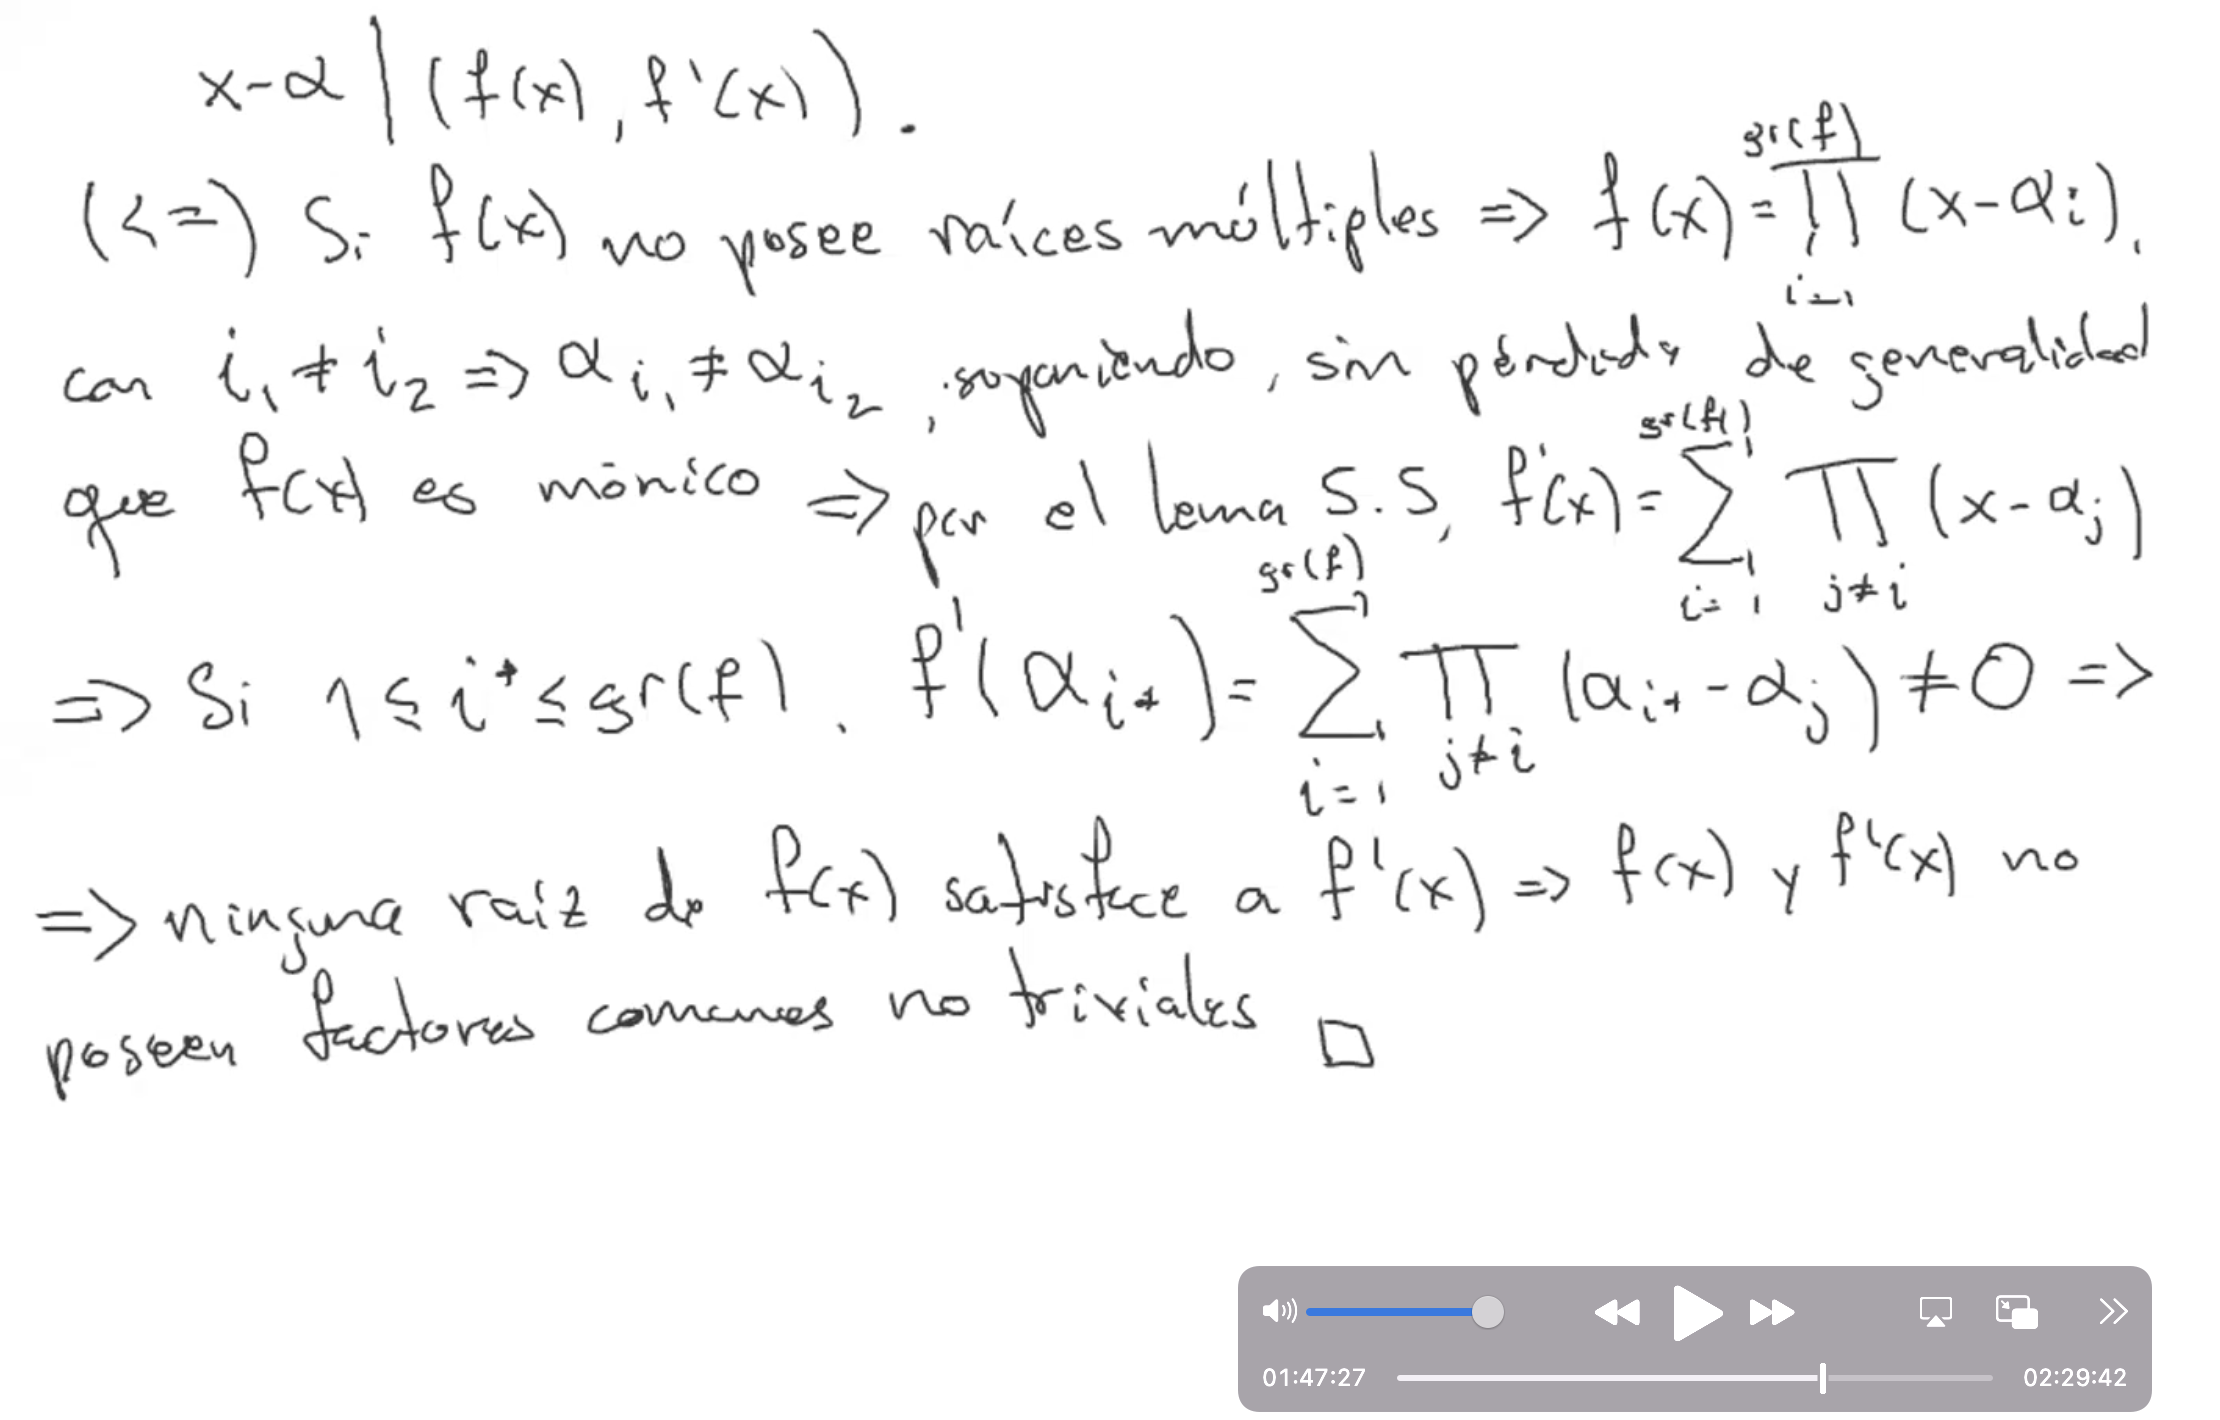 x-α | (f(x), f'(x)).
(<=) Si f(x) no posee raíces múltiples => f(x) = ∏_{i=1}^{gr(f)} (x-α_i),
con i₁ ≠ i₂ => α_{i₁} ≠ α_{i₂}, suponiendo, sin pérdida de generalidad
que f(x) es mónico => por el lema 5.5, f'(x) = ∑_{i=1}^{gr(f)} ∏_{j≠i} (x-α_j)
=> Si 1 ≤ i* ≤ gr(f), f'(α_{i*}) = ∑_{i=1}^{gr(f)} ∏_{j≠i} (α_{i*} - α_j) ≠ 0 =>
=> ninguna raíz de f(x) satisface a f'(x) => f(x) y f'(x) no
poseen factores comunes no triviales □
01:47:27 02:29:42